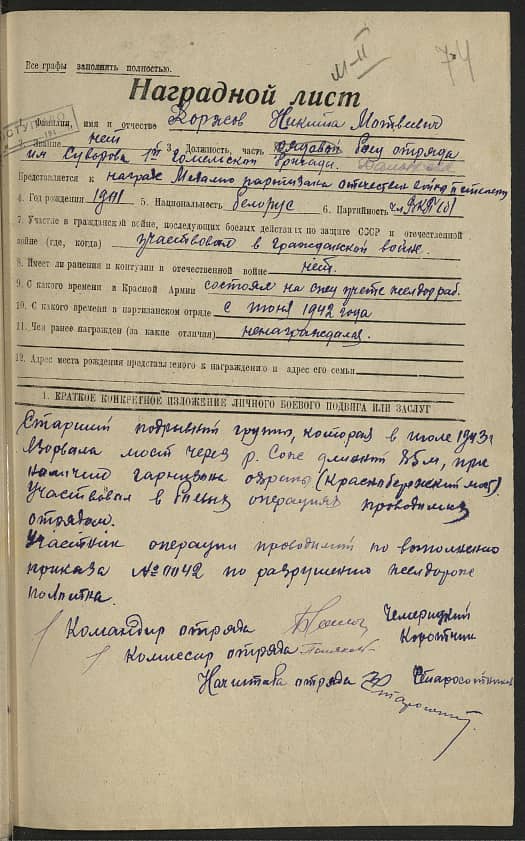 М-II
74
Все графы заполнять полностью.
Наградной лист
Фамилия, имя и отчество Борисов Никита Матвеевич
Звание нет 3. Должность, часть рядовой Боец отряда
им Суворова 1й Гомельской бригады.
Представляется к награде Медалью партизана отечествен войны II степени
4. Год рождения 1901 5. Национальность белорус 6. Партийность чл ВКП(б)
7. Участие в гражданской войне, последующих боевых действиях по защите СССР и отечественной
войне (где, когда) участвовал в гражданской войне.
8. Имеет ли ранения и контузии в отечественной войне нет.
9. С какого времени в Красной Армии состоял на спец учете желдор раб.
10. С какого времени в партизанском отряде с июня 1942 года
11. Чем ранее награжден (за какие отличия) ненаграждался.
12. Адрес места рождения представленного к награждению и адрес его семьи
1. КРАТКОЕ КОНКРЕТНОЕ ИЗЛОЖЕНИЕ ЛИЧНОГО БОЕВОГО ПОДВИГА ИЛИ ЗАСЛУГ
Старший подрывной группы, которая в июле 1943г
взорвала мост через р. Сож длиной 85м, при
наличии гарнизона охраны (Краснобережский мост).
Участвовал в боевых операциях проводимых
отрядом.
Участник операции проводимой по выполнению
приказа №0042 по разрушению желдороге
полотна.
Командир отряда Чемерицкий
Комиссар отряда Коротчик
Начштаба отряда Старосотников